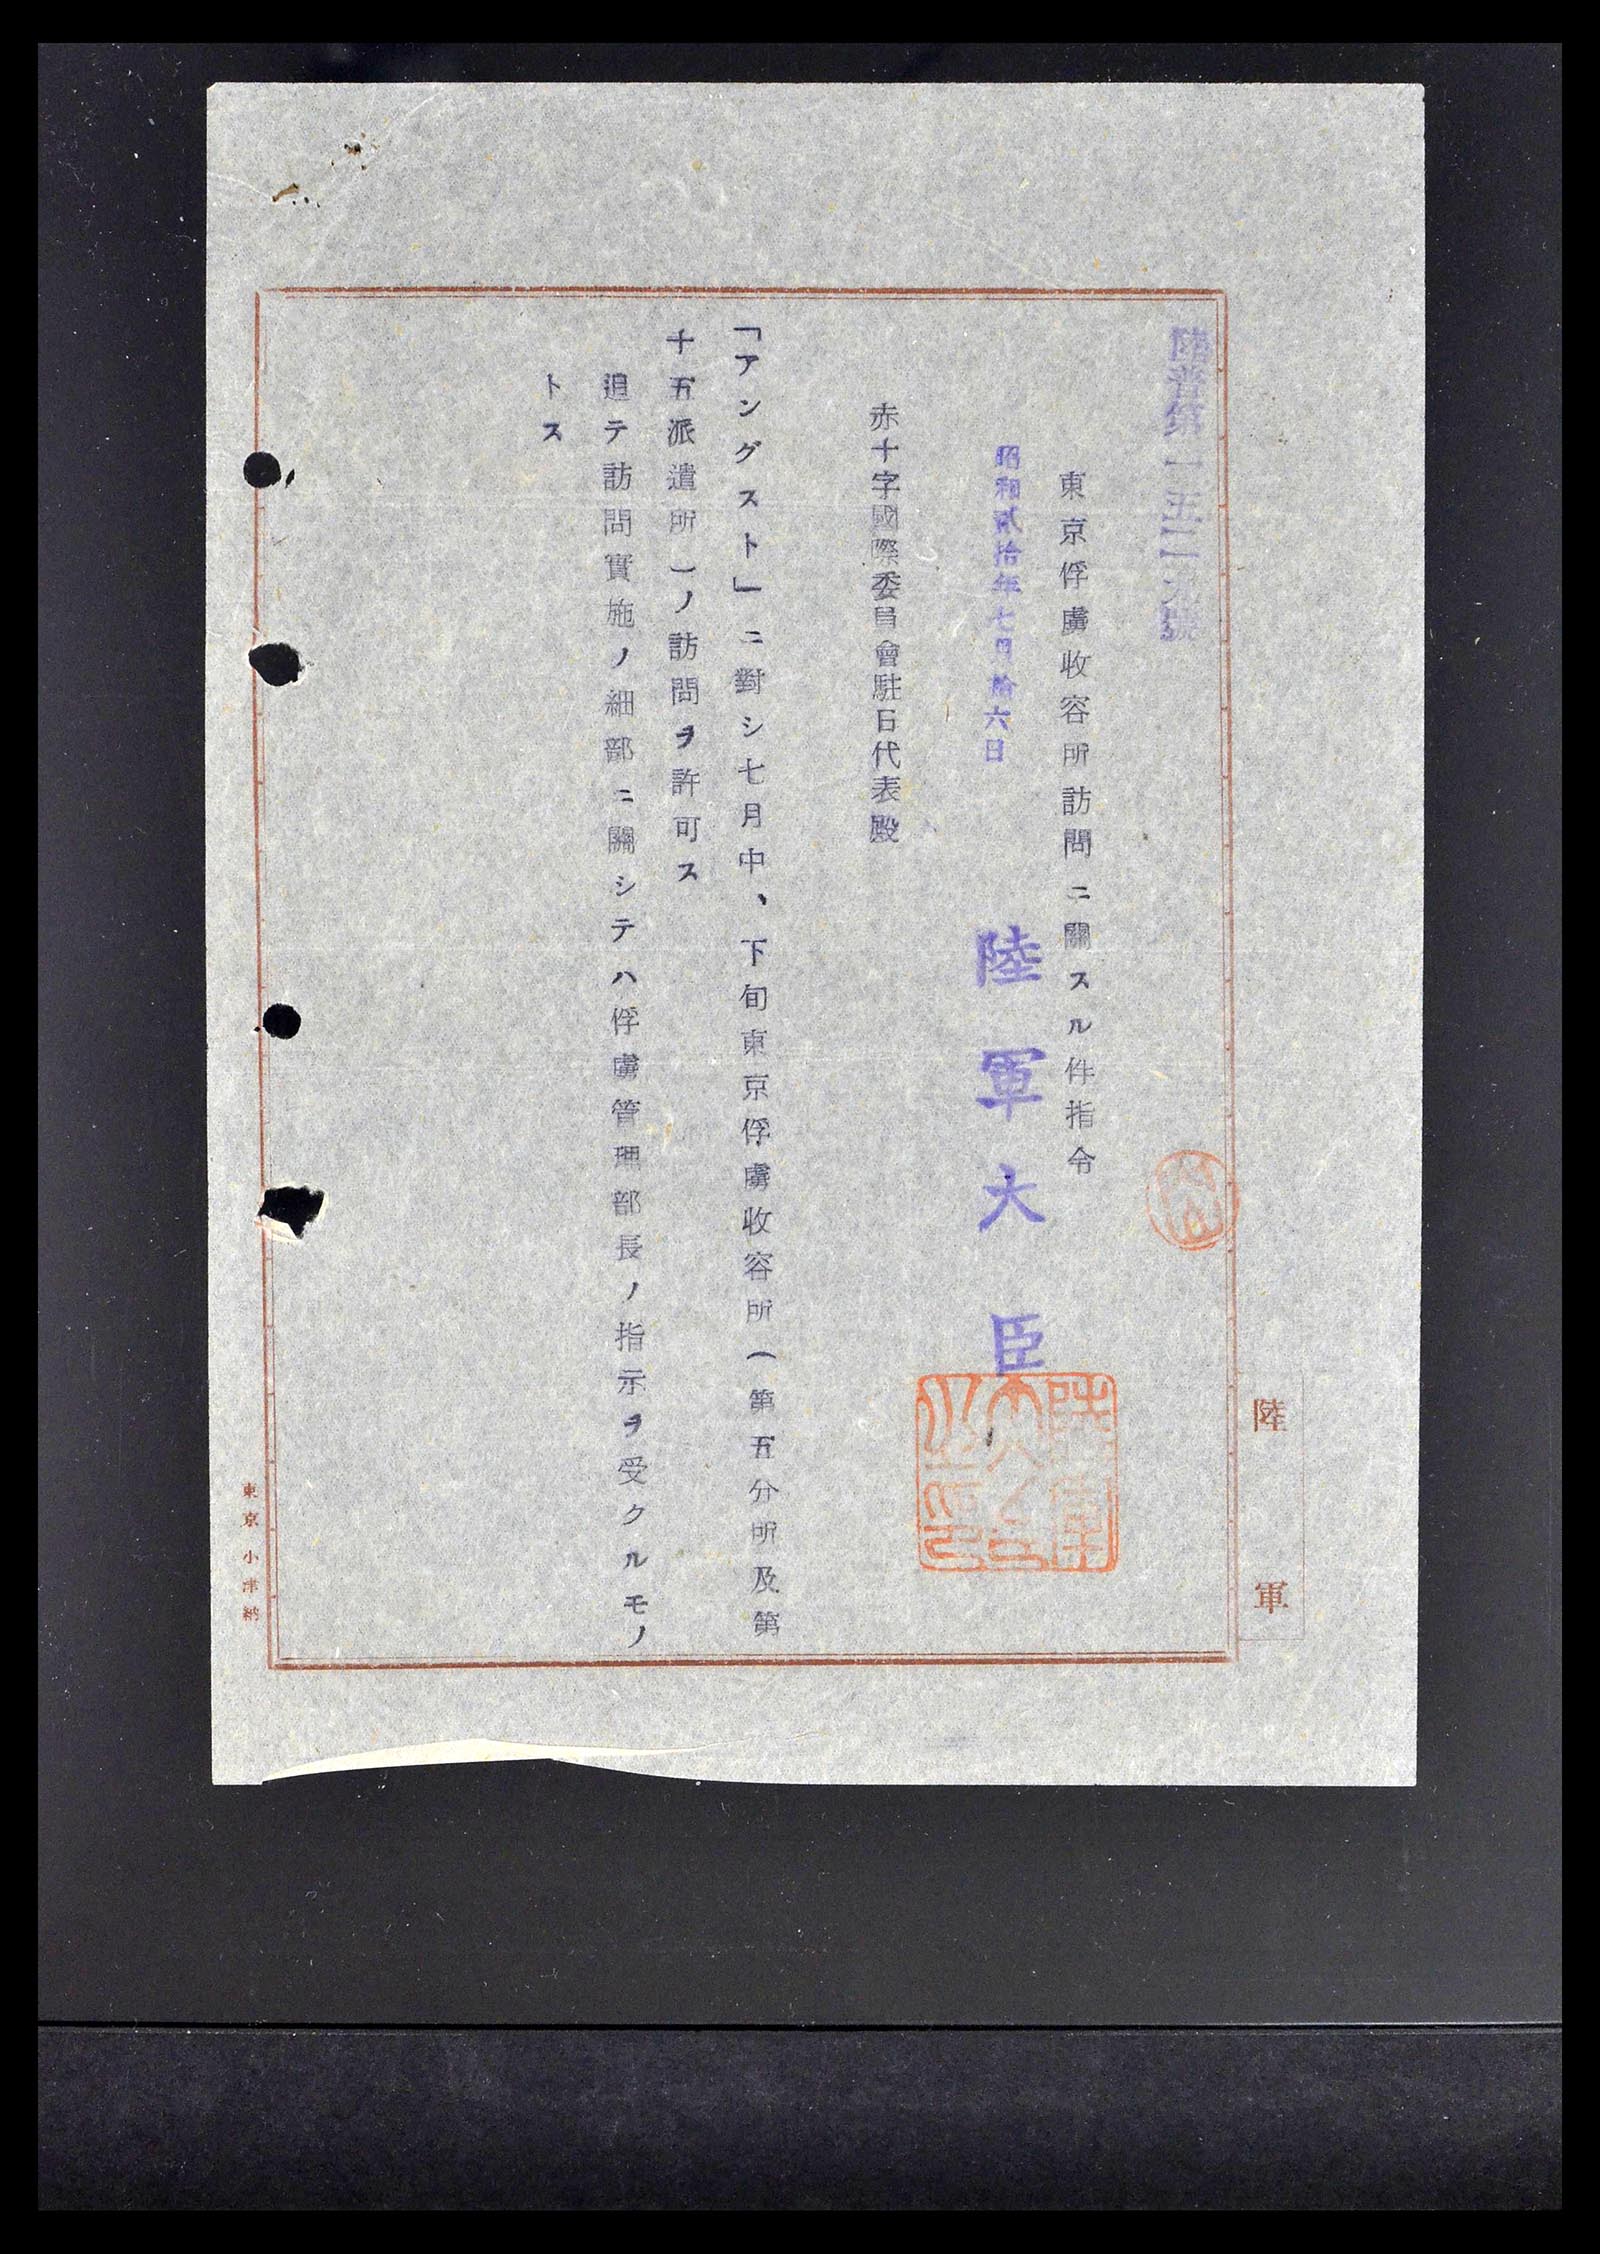 陸普第一五二九號
東京俘虜收容所訪問ニ關スル件指令
昭和貳拾年七月拾六日
陸軍大臣
陸軍大臣之印
赤十字國際委員會駐日代表殿
「アングスト」ニ對シ七月中、下旬東京俘虜收容所(第五分所及第
十五派遣所)ノ訪問ヲ許可ス
追テ訪問實施ノ細部ニ關シテハ俘虜管理部長ノ指示ヲ受クルモノ
トス
陸軍
東京 小津納